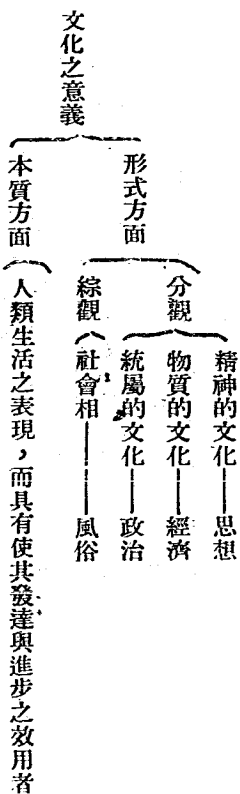 文化之意義
形式方面
分觀
精神的文化——思想
物質的文化——經濟
統屬的文化——政治
綜觀
社會相——風俗
本質方面
人類生活之表現，而具有使其發達與進步之效用者